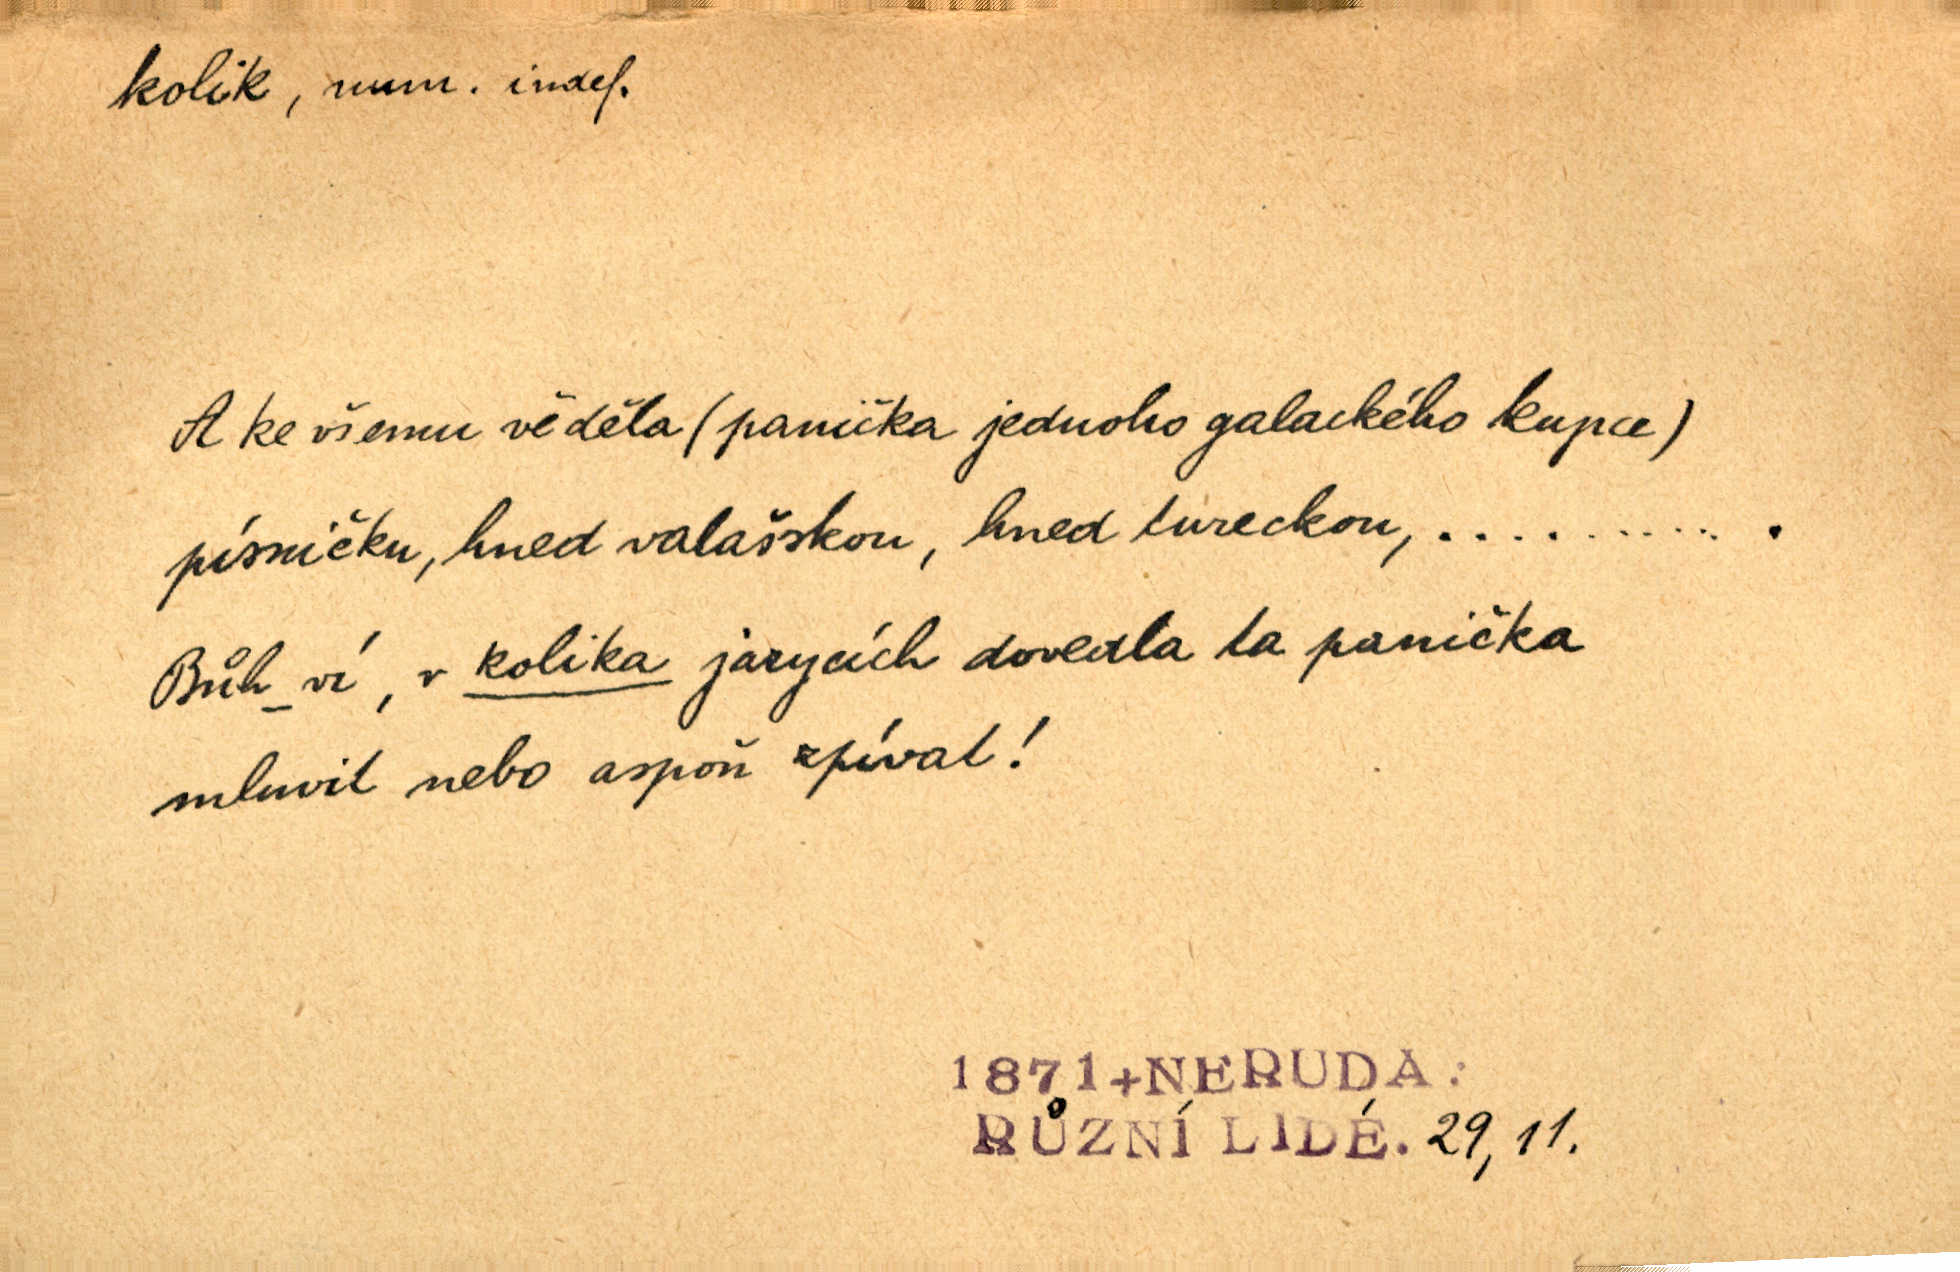 kolik, num. indef.
A ke všemu věděla (panička jednoho galackého kupce)
písničku, hned valašskou, hned tureckou, . . . . . . . . . . .
Bůh_ví, v kolika jazycích dovedla ta panička
mluvit nebo aspoň zpívat!
1871+NERUDA:
RŮZNÍ LIDÉ. 29, 11.